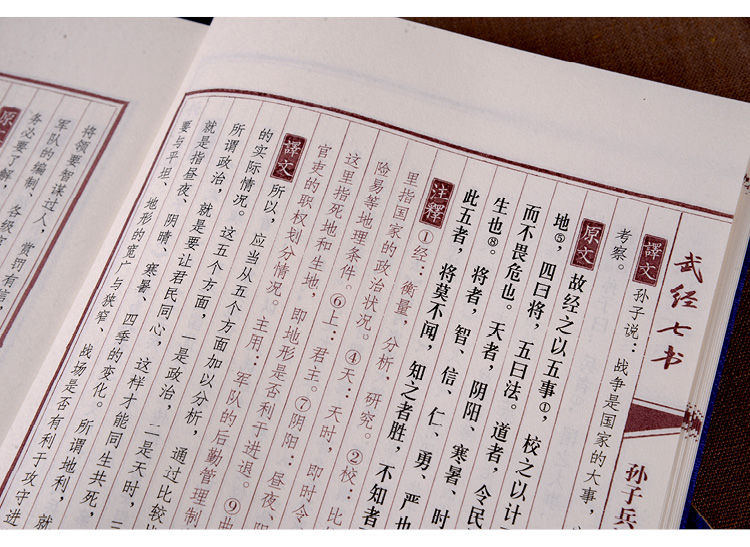 武经七书
孙子兵
譯文 孙子说：战争是国家的大事，
考察。
原文 故经之以五事①，校之以计
地⑤，四曰将，五曰法。道者，令民
而不畏危也。天者，阴阳、寒暑、时
生也⑧。将者，智、信、仁、勇、严也
此五者，将莫不闻，知之者胜，不知者
注釋 ①经：衡量，分析、研究。②校：比
里指国家的政治状况。④天：天时，即时令
险易等地理条件。⑥上：君主。⑦阴阳：昼夜、阴
这里指死地和生地，即地形是否利于进退。⑨曲
官吏的职权划分情况。主用：军队的后勤管理制
譯文 所以，应当从五个方面加以分析，通过比较
的实际情况。这五个方面，一是政治，二是天时，
所谓政治，就是要让君民同心，这样才能同生共死，
就是指昼夜、阴晴、寒暑、四季的变化。所谓地利，就
要与平坦、地形的宽广与狭窄、战场是否有利于攻守进
将领要智谋过人，赏罚有信，
军队的编制、各级官
务必要了解，
原